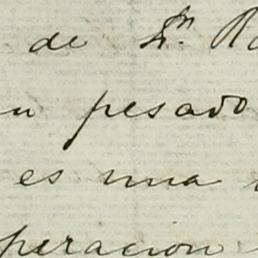 de Dn. R
n pesado
es una
peracion